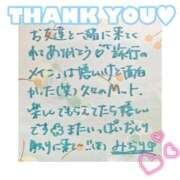 THANK YOU♡
お友達と一緒に来てく
れありがとう♡旅行の
メインとは嬉しいけど面白
かった(笑)久々のMート
楽しんでもらえてたら嬉しい
です またいっぱいおしり
触りに来て
みちり